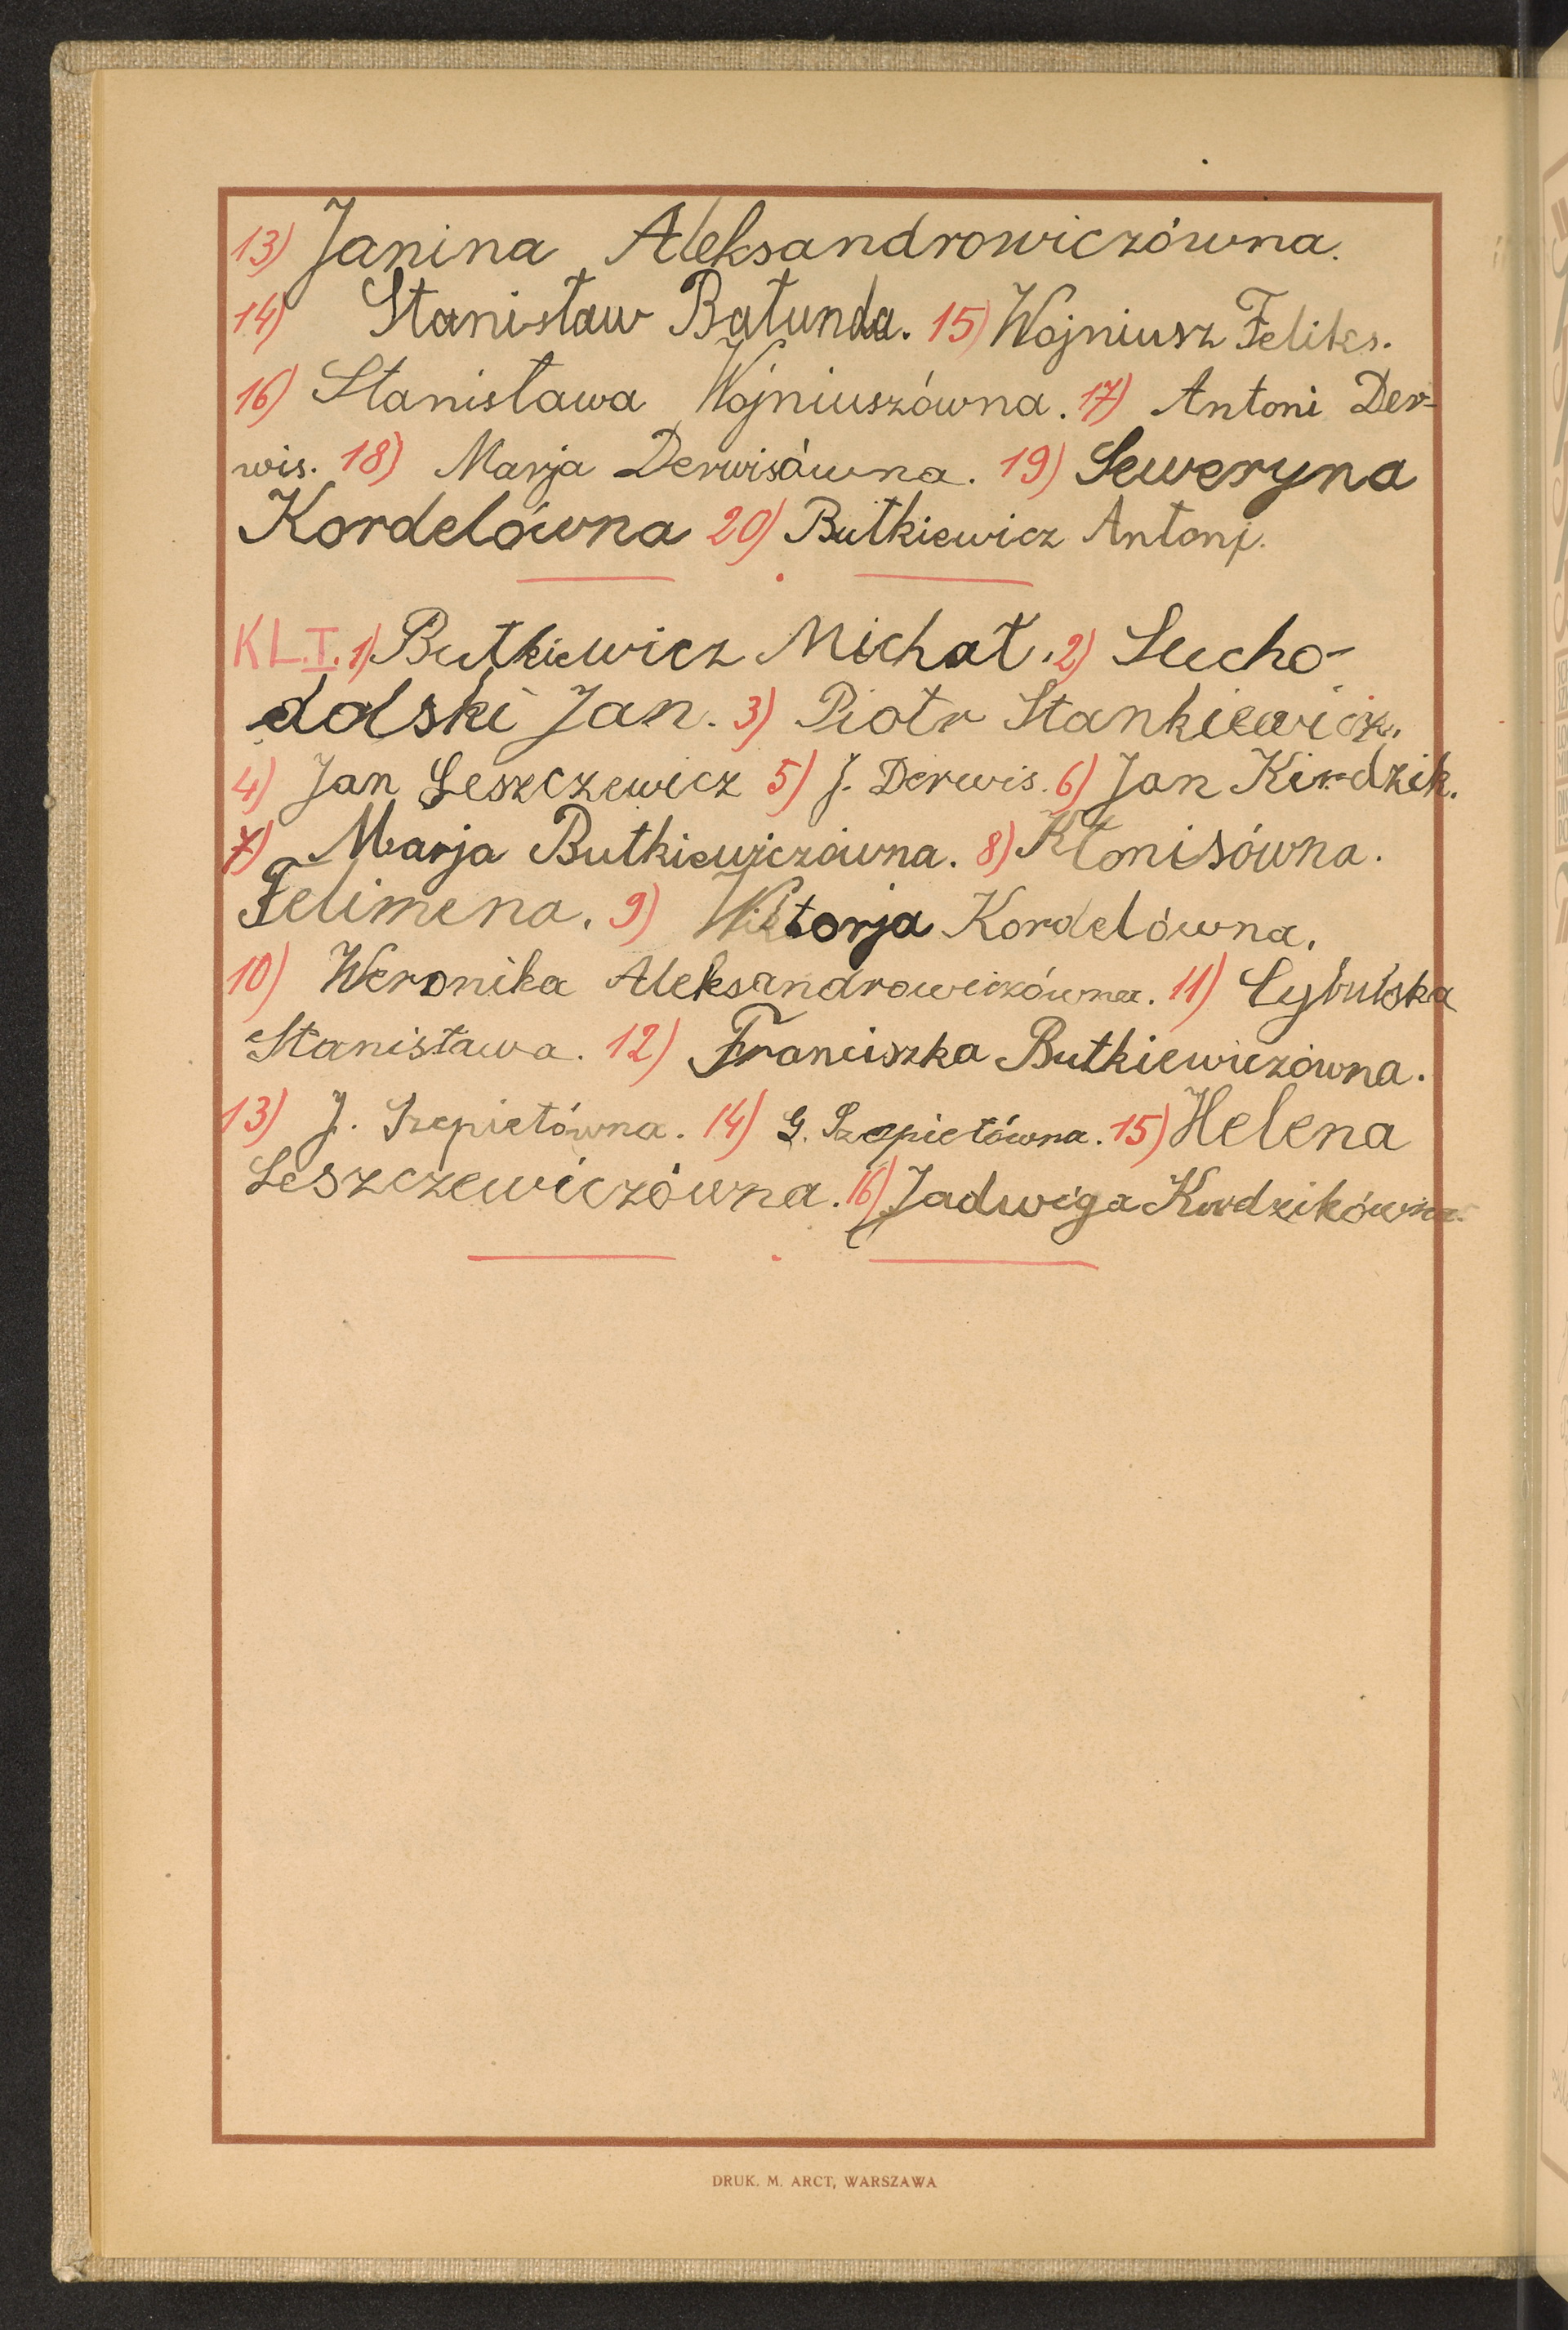 13) Janina Aleksandrowiczówna.
14) Stanisław Bałunda. 15) Wojniusz Feliks.
16) Stanisława Wojniuszówna. 17) Antoni Der-
wis. 18) Marja Derwisówna. 19) Seweryna
Kordelówna 20) Butkiewicz Antoni.
KL.I. 1) Butkiewicz Michał. 2) Sucho-
dolski Jan. 3) Piotr Stankiewicz.
4) Jan Leszczewicz 5) J. Derwis. 6) Jan Kirdzik.
7) Marja Butkiewiczówna. 8) Kłonisówna.
Felimena. 9) Wiktorja Kordelówna.
10) Weronika Aleksandrowiczówna. 11) Cybulska
Stanisława. 12) Franciszka Butkiewiczówna.
13) J. Szepietówna. 14) G. Szepietówna. 15) Helena
Leszczewiczówna. 16) Jadwiga Kirdzikówna.
DRUK. M. ARCT, WARSZAWA